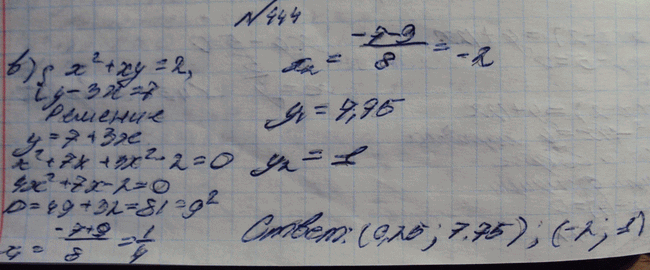 №444
в) { x² + xy = 2,
y - 3x = 7
Решение
y = 7 + 3x
x² + 7x + 3x² - 2 = 0
4x² + 7x - 2 = 0
D = 49 + 32 = 81 = 9²
x₁ = (-7+9)/8 = 1/4
x₂ = (-7-9)/8 = -2
y₁ = 7,75
y₂ = 1
Ответ: (0,25; 7.75); (-2; 1)